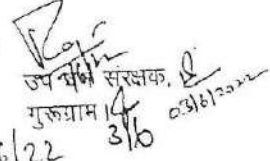 उप वन संरक्षक,
गुरूग्राम।
03/6/2022
3/6
6/22